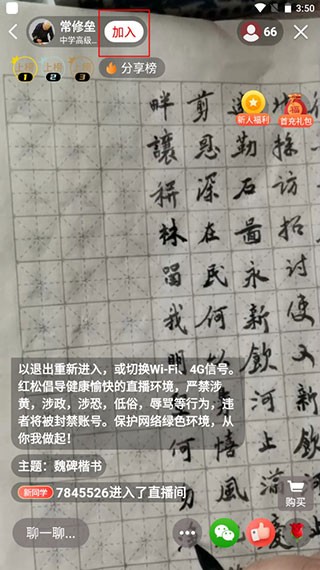 3:50
常修垒
中学高级...
加入
66
上榜
1
上榜
2
上榜
3
分享榜
新人福利
首充礼包
採訪招討
勤石
新飲
剪恩深在民何
畔讓耕林留我明
以退出重新进入，或切换Wi-Fi、4G信号。
红松倡导健康愉快的直播环境，严禁涉
黄，涉政，涉恐，低俗，辱骂等行为，违
者将被封禁账号。保护网络绿色环境，从
你我做起！
主题：魏碑楷书
新同学
7845526进入了直播间
购买
聊一聊...